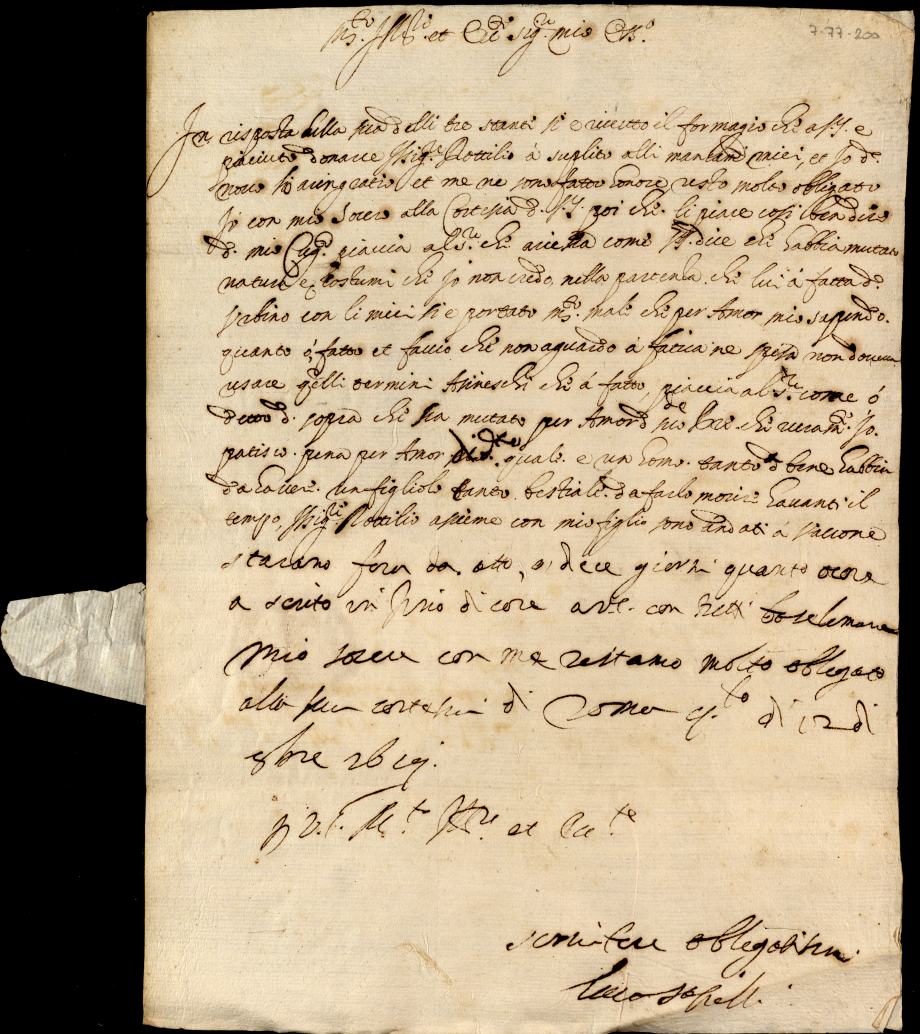 7-77-200
et sig.re mio
In risposta della sua delli tre stanti si e riceuto il formagio che a V.S. e
piaciuto donarce Il sig.re Rottilio á suplito alli mancam.ti miei, et Jo d.
nouo lo aringratio et me ne sono fatto honore resto molto obligato
Jo con mio Socero alla Cortesia d. V.S. poi che li piace cosi
d. mio piaccia al s.re che come V.S. dice che habbia mutato
natura e costumi che Jo non credo, nella partenza che lui á fatta d.
Vrbino con li miei si e portato male che per Amor mio sapendo.
quanto ó fatto et faccio che non aguardo á fatica ne spesa non doueua
usare quelli termini Asineschi che á fatto, piaccia al s.re come ó
detto d. sopra che sia mutato per Amor d. suo Pre. che ueram.te Jo.
patisco. pena per Amor quale. e un homo. tanto da bene habbia
da hauere. un figliolo tanto. bestiale. da farlo morire hauanti il
tempo, Il sig.re Rottilio asieme con mio figlio sono andati á
starano fora da. otto, o, dece giorni quanto ocore
a scrito di core con tutti
Mio socero con me restamo molto obligato
alla sua cortesia di Roma q.to di 12 di
8bre 161
D V.S. M.to Ill.re et Ecc.te
seruitore obligatissimo
Luca